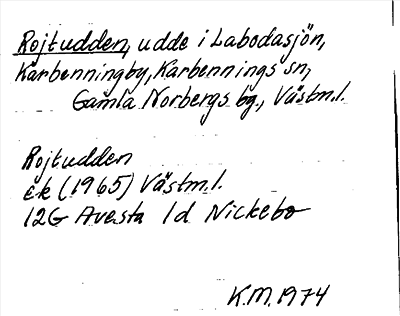 Rojtudden, udde i Labodasjön,
Karbenningby, Karbennings sn,
Gamla Norbergs bg., Västm.l.
Rojtudden
ek (1965) Västm.l.
12G Avesta 1d Nickebo
K.M. 1974